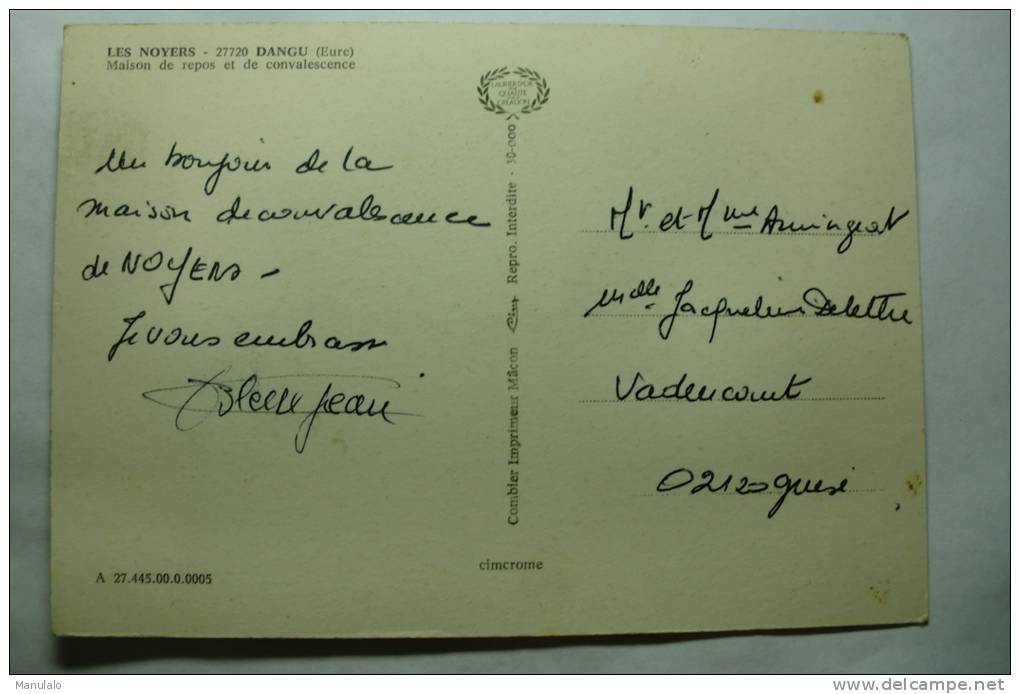 LES NOYERS - 27720 DANGU (Eure)
Maison de repos et de convalescence
LAURIER D'OR
DE LA
QUALITE
CREATION
Un bonjour de la
maison de convalescence
de NOYERS -
Je vous embrasse
Jean
A 27.445.00.0.0005
Combier Imprimeur Mâcon Cim Repro. Interdite - 30-000
cimcrome
Mr. et Mme
Mdlle Jacqueline Delettre
Vadencourt
02120 Guise
Manulalo
www.delcampe.net